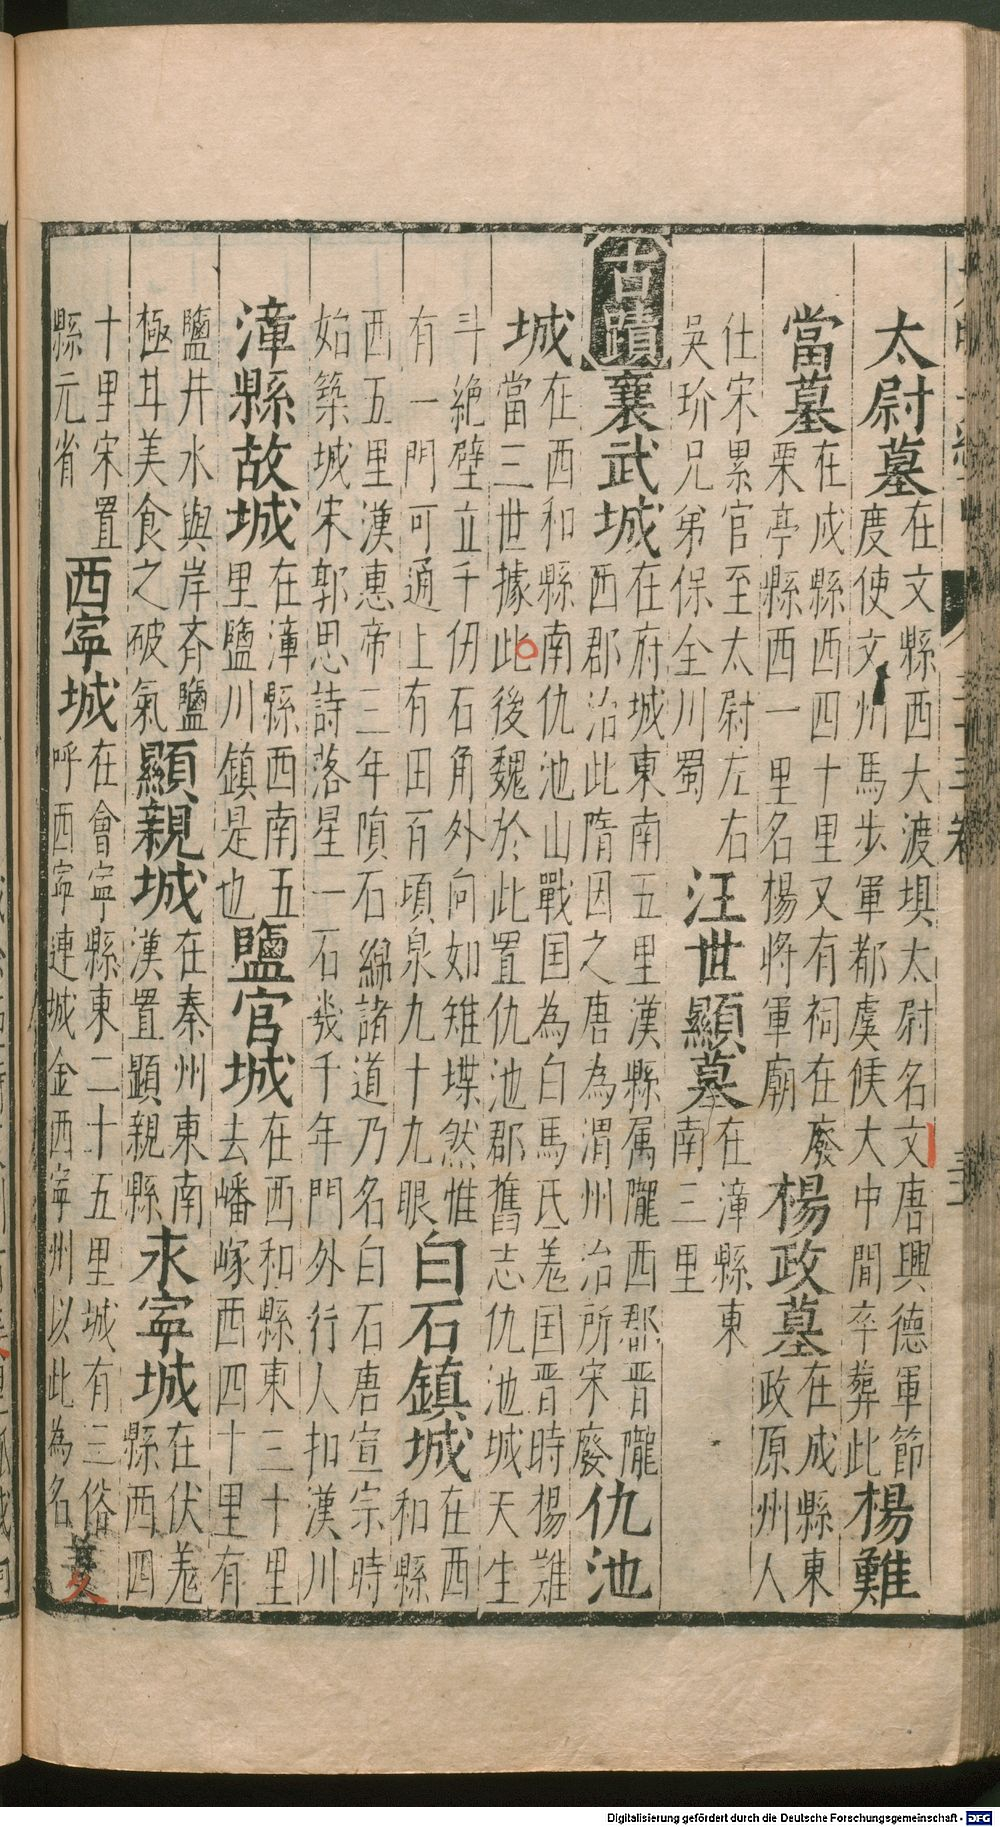 太尉墓在文縣西大渡垻太尉名文唐興德軍節
度使文州馬步軍都虞候大中間卒葬此楊難
當墓在成縣西四十里又有祠在廢
栗亭縣西一里名楊將軍廟楊政墓在成縣東
政原州人
仕宋累官至太尉左右
吳玠兄弟保全川蜀汪世顯墓在漳縣東
南三里
古蹟襄武城在府城東南五里漢縣属隴西郡晋隴
西郡治此隋因之唐為渭州治所宋廢仇池
城在西和縣南仇池山戰国為白馬氐羗国晋時楊難
當三世據此後魏於此置仇池郡舊志仇池城天生
斗絶壁立千仞石角外向如雉堞然惟
有一門可通上有田百頃泉九十九眼白石鎮城在西
和縣
西五里漢惠帝三年隕石綿諸道乃名白石唐宣宗時
始築城宋郭思詩落星一石幾千年門外行人扣漢川
漳縣故城在漳縣西南五
里鹽川鎮是也鹽官城在西和縣東三十里
去嶓嵕西四十里有
鹽井水與岸齊鹽
極甘美食之破氣顯親城在秦州東南
漢置顯親縣永寧城在伏羗
縣西四
十里宋置
縣元省西寧城在會寧縣東二十五里城有三俗
呼西寧連城金西寧州以此為名
Digitalisierung gefördert durch die Deutsche Forschungsgemeinschaft - DFG